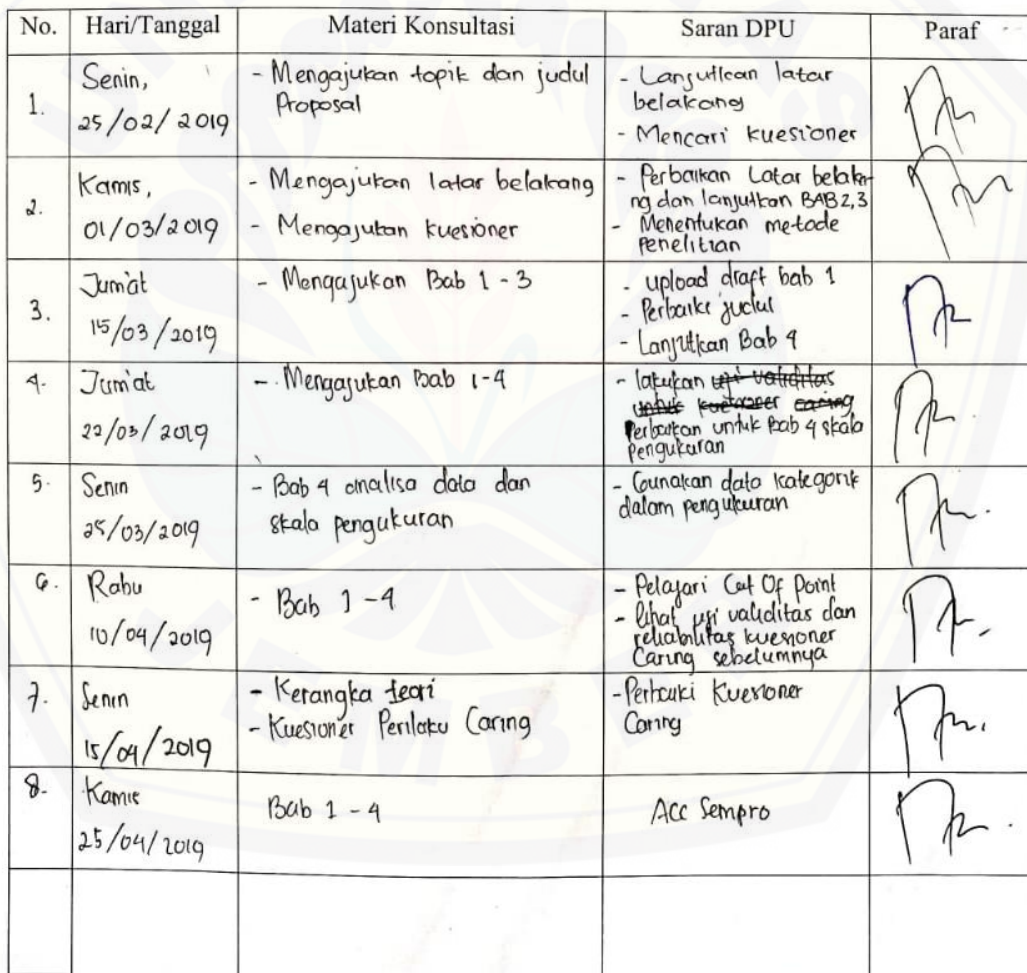 No. Hari/Tanggal Materi Konsultasi Saran DPU Paraf
1. Senin,
25/02/2019
- Mengajukan topik dan judul
Proposal
- Lanjutkan latar
belakang
- Mencari kuesioner
2. Kamis,
01/03/2019
- Mengajukan latar belakang
- Mengajukan kuesioner
- Perbaikan Latar belaka
ng dan lanjutkan BAB 2,3
- Menentukan metode
penelitian
3. Jum'at
15/03/2019
- Mengajukan Bab 1 - 3
- upload draft bab 1
- Perbaiki judul
- Lanjutkan Bab 4
4. Jum'at
22/03/2019
- Mengajukan Bab 1-4
- lakukan uji validitas
untuk kuesioner caring
Perbaikan untuk Bab 4 skala
pengukuran
5. Senin
25/03/2019
- Bab 4 analisa data dan
skala pengukuran
- Gunakan data kategorik
dalam pengukuran
6. Rabu
10/04/2019
- Bab 1 - 4
- Pelajari Cut Of Point
- lihat uji validitas dan
reliabilitas kuesioner
Caring sebelumnya
7. Senin
15/04/2019
- Kerangka teori
- Kuesioner Perilaku Caring
- Perbaiki Kuesioner
Caring
8. Kamis
25/04/2019
Bab 1 - 4
Acc Sempro